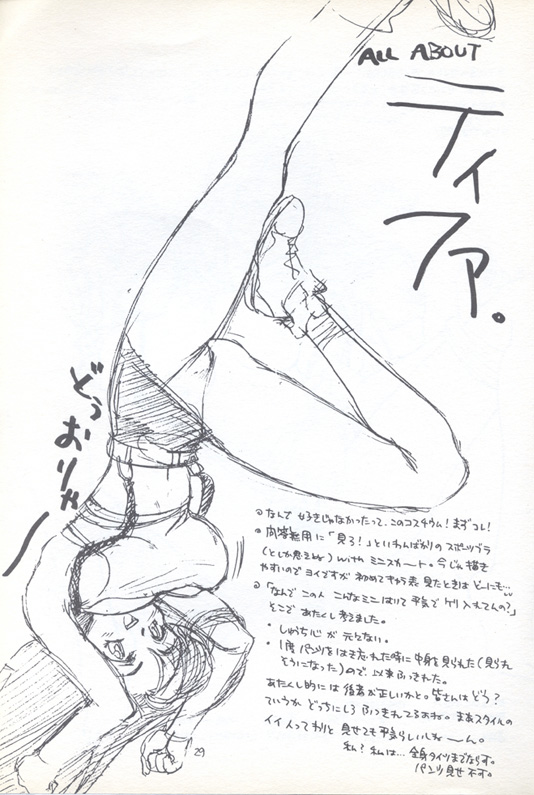 ALL ABOUT
ティファ。
どぅおりゃー
なんで 好きじゃなかったって、このコスチウム！まずコレ！
問答無用に「見ろ！」といわんばかりのスポーツブラ
(としか思えねえ) with ミニスカート。今じゃ描き
やすいのでヨイですが 初めて 見たときは どーにも…
「なんで この人 こんなミニはいて 平気で ケリ 入れてんの？」
とこで あたくし考えました。
・しゅうち心が 元々ない。
・1度 パンツをはき忘れた時に 中身を見られた(見られ
そうになった)ので、以来ふっきれた。
あたくし的には 後者が正しいかと。皆さんは どう？
ていうか どっちにしろ ふっきれてるよね。まあスタイルの
イイ人ってわりと 見せても平気らしいしねーん。
私？私は… 全身タイツまでならす。
パンツ見せ 不可。
29